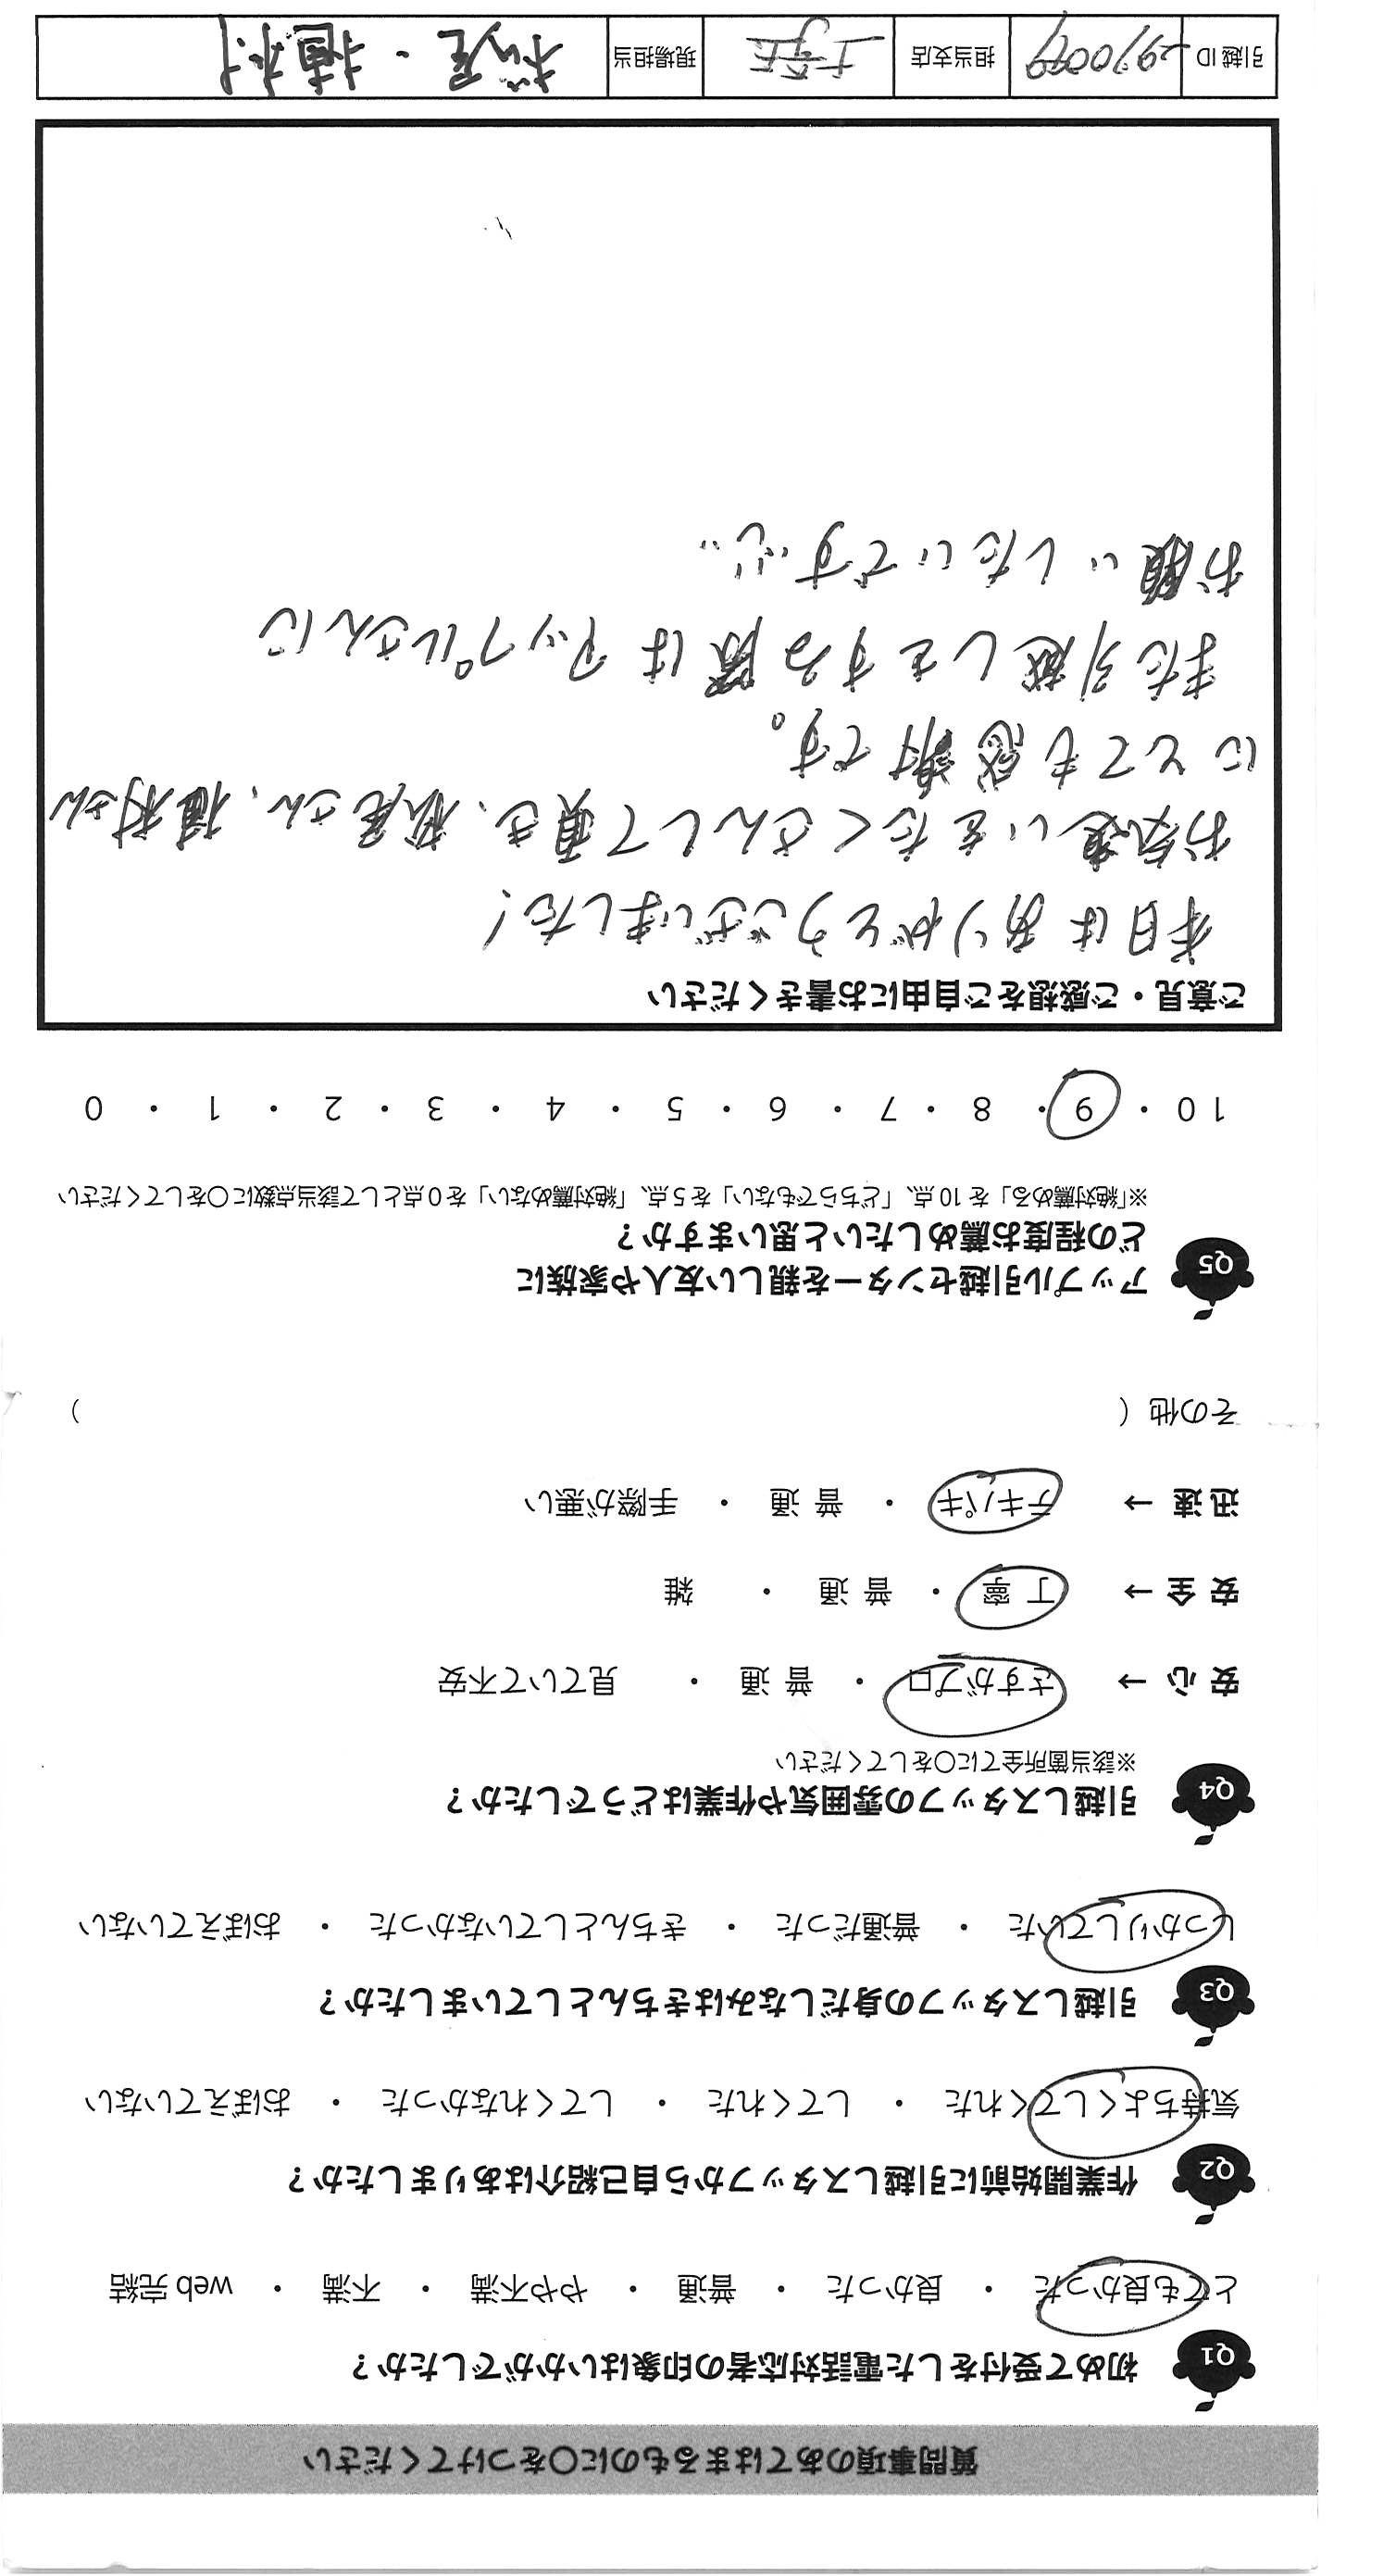 質問事項のあてはまるものに○をつけてください
Q1 初めて受付をした電話対応者の印象はいかがでしたか？
とても良かった ・ 良かった ・ 普通 ・ やや不満 ・ 不満 ・ web 完結
Q2 作業開始前に引越しスタッフから自己紹介はありましたか？
気持ちよくしてくれた ・ してくれた ・ してくれなかった ・ おぼえていない
Q3 引越しスタッフの身だしなみはきちんとしていましたか？
しっかりしていた ・ 普通だった ・ きちんとしていなかった ・ おぼえていない
Q4 引越しスタッフの雰囲気や作業はどうでしたか？
※該当箇所全てに○をしてください
安 心 → さすがプロ ・ 普 通 ・ 見ていて不安
安 全 → 丁 寧 ・ 普 通 ・ 雑
迅 速 → テキパキ ・ 普 通 ・ 手際が悪い
その他（ ）
Q5 アップル引越センターを親しい友人や家族に
どの程度お薦めしたいと思いますか？
※「絶対薦める」を 10 点、「どちらでもない」を 5 点、「絶対薦めない」を 0 点として該当点数に○をしてください
10 ・ 9 ・ 8 ・ 7 ・ 6 ・ 5 ・ 4 ・ 3 ・ 2 ・ 1 ・ 0
ご意見・ご感想をご自由にお書きください
本日はありがとうございました！
お気遣いをたくさんして頂き、松尾さん、植村さん
にとても感謝です。
また引越しをする際はアップルさんに
お願いしたいです
引越 ID 担当支店 現場担当 松尾・植村